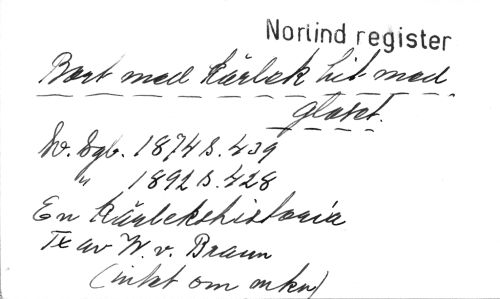 Norlind register
Bort med kärlek hit med
glaset.
Sv. Sgb. 1874 s. 439
" 1892 s. 428
En kärlekshistoria
Tx av W. v. Braun
(intet om mkn)